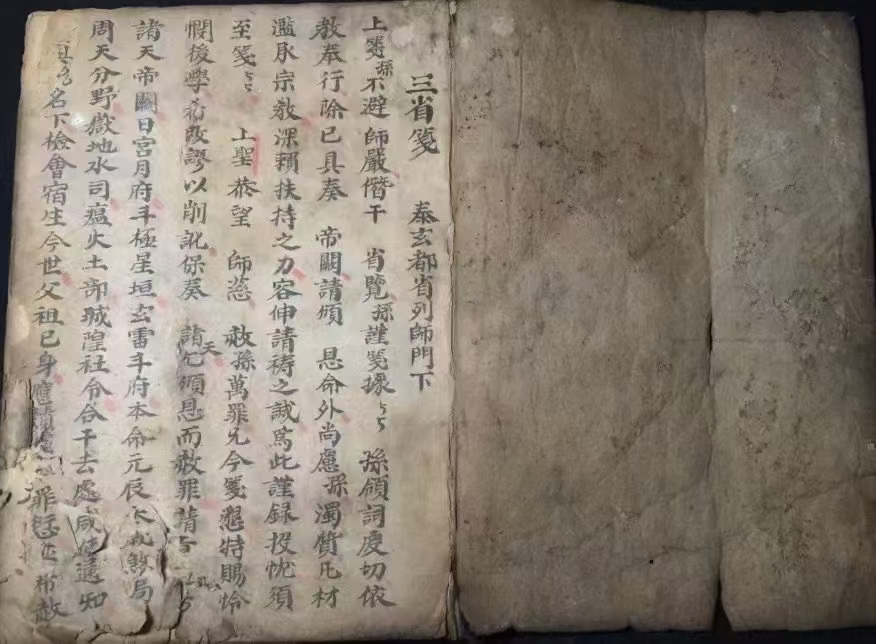 三省箋 泰玄都省列師門下
上箋孫不避師嚴僭干 省覽孫謹箋據 孫領詞虔切依
教奉行除已具奏 帝闕請頒 恩命外尚慮孫濁質凡材
濫承宗教深賴扶持之力容伸請禱之誠爲此謹録投忱須
至箋 上聖恭望 師慈 赦孫萬罪允今箋懇特賜怜
憫後學 改謬以削訛保奏 諸天 頒恩而赦罪請
諸天帝闕日宮月府斗極星垣玄雷斗府本命元辰 煞局
周天分野嶽地水司瘟火土部城隍社令合干去處咸 知
名下檢會宿生今世父祖已身 罪